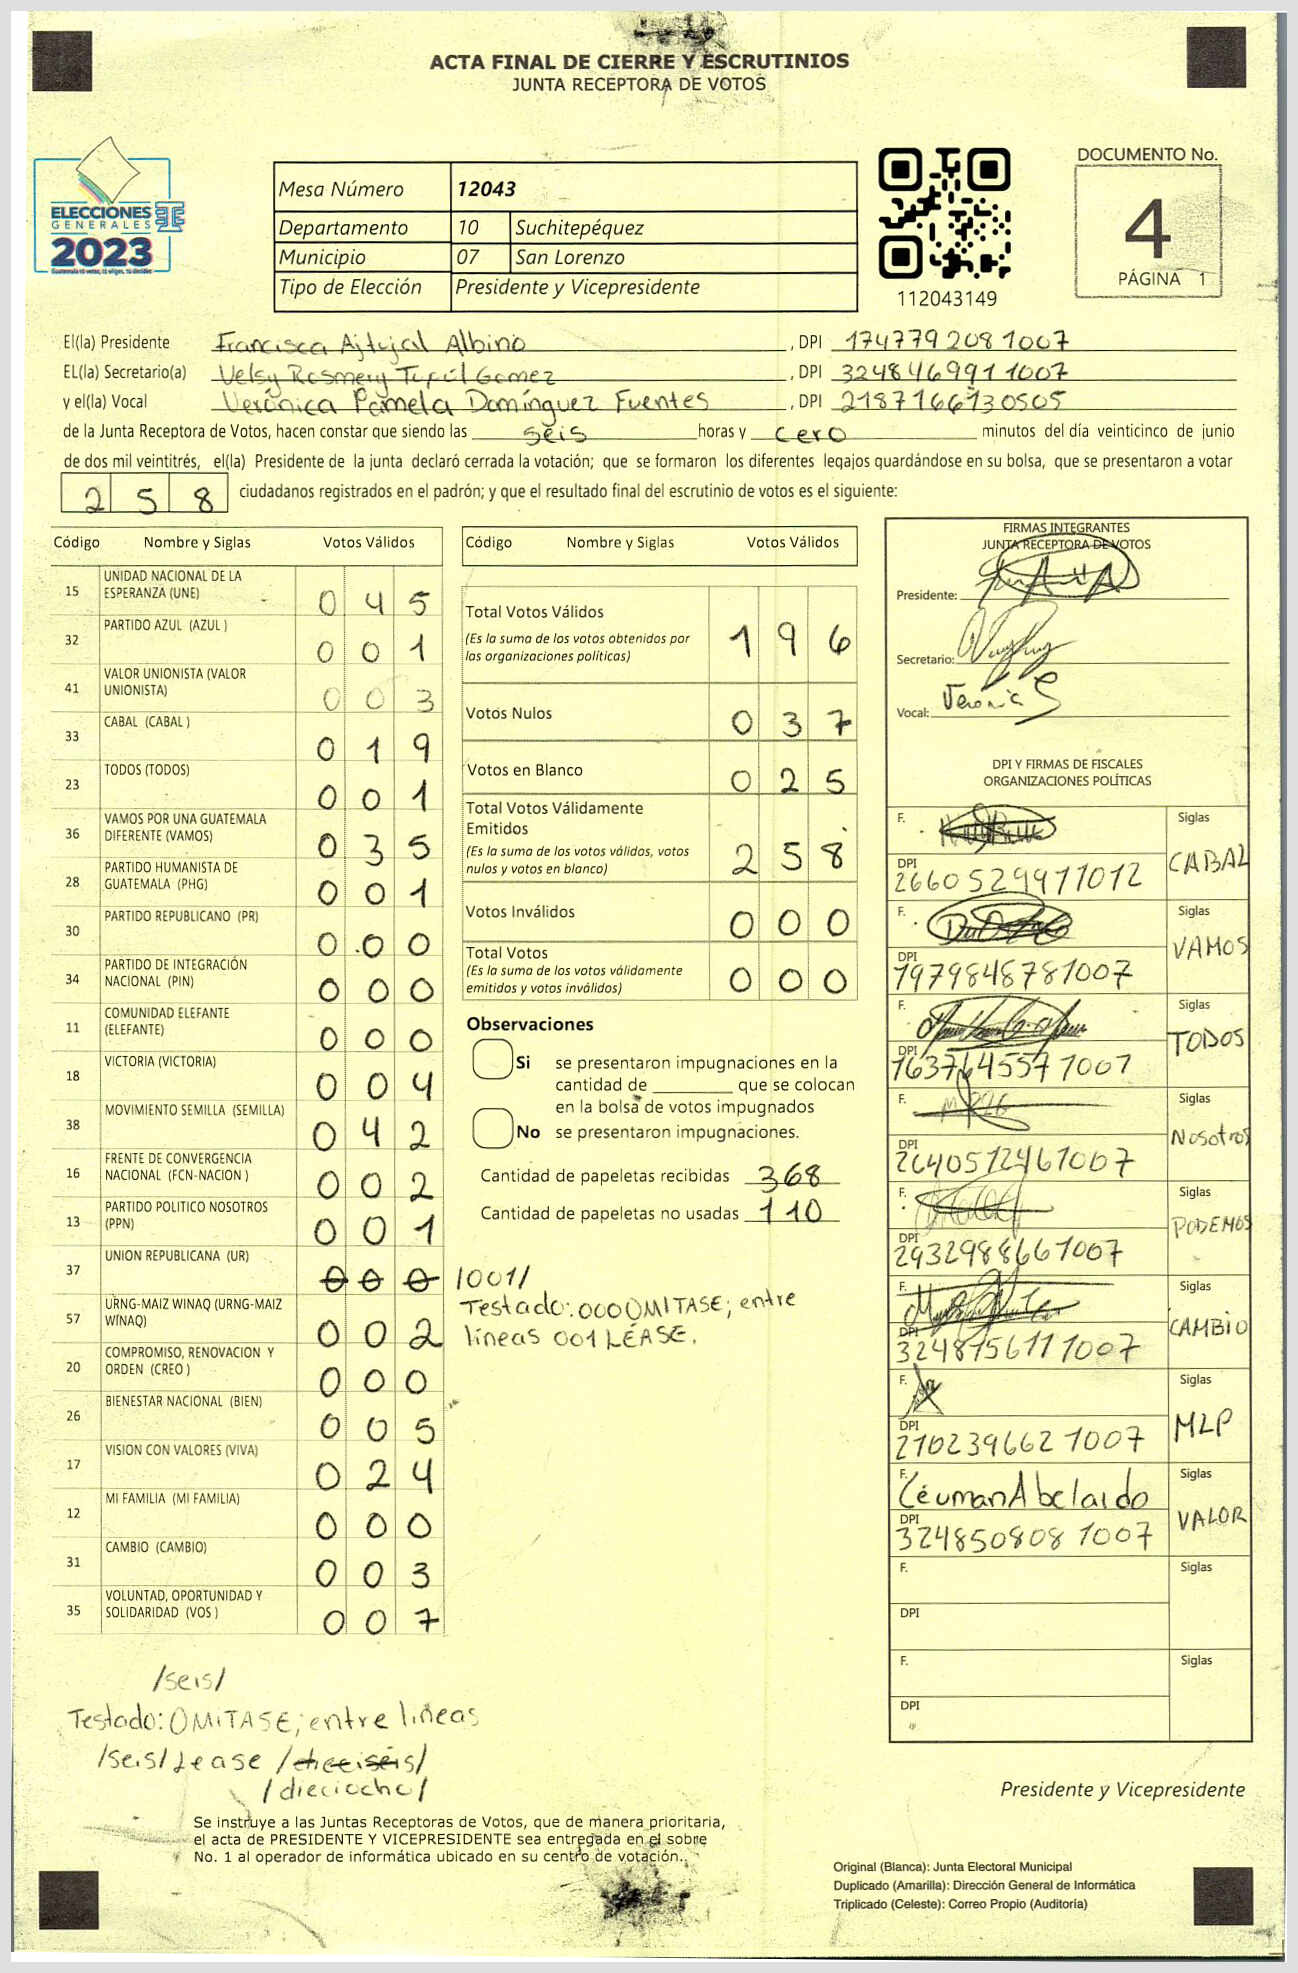 ACTA FINAL DE CIERRE Y ESCRUTINIOS
JUNTA RECEPTORA DE VOTOS
ELECCIONES
GENERALES
2023
Mesa Número 12043
Departamento 10 Suchitepéquez
Municipio 07 San Lorenzo
Tipo de Elección Presidente y Vicepresidente
112043149
DOCUMENTO No.
4
PÁGINA 1
El(la) Presidente Francisca Ajtujal Albino, DPI 174779 208 1007
EL(la) Secretario(a) Velsy Rosmery Gomez, DPI 3248469911007
y el(la) Vocal Verónica Pamela Domínguez Fuentes, DPI 2187166130505
de la Junta Receptora de Votos, hacen constar que siendo las seis horas y cero minutos del día veinticinco de junio
de dos mil veintitrés, el(la) Presidente de la junta declaró cerrada la votación; que se formaron los diferentes legajos guardándose en su bolsa, que se presentaron a votar
258 ciudadanos registrados en el padrón; y que el resultado final del escrutinio de votos es el siguiente:
Código Nombre y Siglas Votos Válidos
15 UNIDAD NACIONAL DE LA ESPERANZA (UNE) 045
32 PARTIDO AZUL (AZUL ) 001
41 VALOR UNIONISTA (VALOR UNIONISTA) 003
33 CABAL (CABAL ) 019
23 TODOS (TODOS) 001
36 VAMOS POR UNA GUATEMALA DIFERENTE (VAMOS) 035
28 PARTIDO HUMANISTA DE GUATEMALA (PHG) 001
30 PARTIDO REPUBLICANO (PR) 000
34 PARTIDO DE INTEGRACIÓN NACIONAL (PIN) 000
11 COMUNIDAD ELEFANTE (ELEFANTE) 000
18 VICTORIA (VICTORIA) 004
38 MOVIMIENTO SEMILLA (SEMILLA) 042
16 FRENTE DE CONVERGENCIA NACIONAL (FCN-NACION ) 002
13 PARTIDO POLITICO NOSOTROS (PPN) 001
37 UNION REPUBLICANA (UR) 000 /001/
57 URNG-MAIZ WINAQ (URNG-MAIZ WINAQ) 002
20 COMPROMISO, RENOVACION Y ORDEN (CREO ) 000
26 BIENESTAR NACIONAL (BIEN) 005
17 VISION CON VALORES (VIVA) 024
12 MI FAMILIA (MI FAMILIA) 000
31 CAMBIO (CAMBIO) 003
35 VOLUNTAD, OPORTUNIDAD Y SOLIDARIDAD (VOS ) 007
/seis/
Testado: OMITASE; entre lineas
/seis/ Lease /dieciseis/
/dieciocho/
Código Nombre y Siglas Votos Válidos
Total Votos Válidos 196
(Es la suma de los votos obtenidos por
las organizaciones políticas)
Votos Nulos 037
Votos en Blanco 025
Total Votos Válidamente
Emitidos 258
(Es la suma de los votos válidos, votos
nulos y votos en blanco)
Votos Inválidos 000
Total Votos 000
(Es la suma de los votos válidamente
emitidos y votos inválidos)
Observaciones
Si se presentaron impugnaciones en la
cantidad de ________ que se colocan
en la bolsa de votos impugnados
No se presentaron impugnaciones.
Cantidad de papeletas recibidas 368
Cantidad de papeletas no usadas 110
Testado: 000 OMITASE; entre
lineas 001 LÉASE.
FIRMAS INTEGRANTES
JUNTA RECEPTORA DE VOTOS
Presidente:
Secretario:
Vocal:
DPI Y FIRMAS DE FISCALES
ORGANIZACIONES POLÍTICAS
F. Siglas
DPI 2660529911012 CABAL
F. Siglas
DPI 1979848781007 VAMOS
F. Siglas
DPI 1637645571007 TODOS
F. Siglas
DPI 2640512461007 Nosotros
F. Siglas
DPI 2932988661007 PODEMOS
F. Siglas
DPI 3248156111007 CAMBIO
F. Siglas
DPI 2102396621007 MLP
F. Abelardo Siglas
DPI 3248508081007 VALOR
F. Siglas
DPI
F. Siglas
DPI
Presidente y Vicepresidente
Se instruye a las Juntas Receptoras de Votos, que de manera prioritaria,
el acta de PRESIDENTE Y VICEPRESIDENTE sea entregada en el sobre
No. 1 al operador de informática ubicado en su centro de votación.
Original (Blanca): Junta Electoral Municipal
Duplicado (Amarilla): Dirección General de Informática
Triplicado (Celeste): Correo Propio (Auditoría)